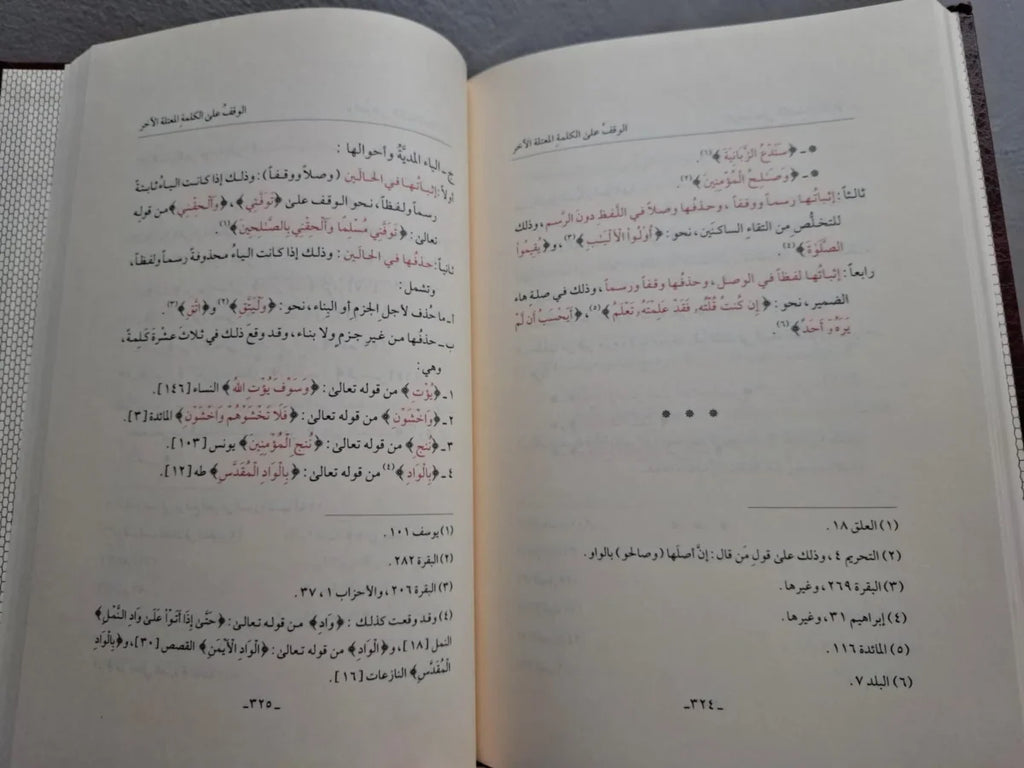 الوقفُ على الكلمةِ المعتلة الآخر
* ـ ﴿سَنَدْعُ الزَّبَانِيَةَ﴾(١).
* ـ ﴿وَصَـٰلِحُ الْمُؤْمِنِينَ﴾(٢).
ثالثاً: إثباتُها رسماً ووقفاً، وحذفُها وصلاً في اللَّفظ دونَ الرَّسم، وذلك
للتخلُّص من التقاء الساكنَين، نحو: ﴿أُوْلُواْ الْأَلْبَـٰبِ﴾(٣)، و﴿يُقِيمُواْ
الصَّلَوٰةَ﴾(٤).
رابعاً: إثباتُها لفظاً في الوصل، وحذفُها وقفاً ورسماً، وذلك في صلة هاء
الضمير، نحو: ﴿إِن كُنتُ قُلْتُهُۥ فَقَدْ عَلِمْتَهُۥ تَعْلَمُ﴾(٥)، ﴿أَيَحْسَبُ أَن لَّمْ
يَرَهُۥ أَحَدٌ﴾(٦).
* * *
(١) العلق ١٨.
(٢) التحريم ٤، وذلك على قولِ مَن قال: إنَّ أصلَها (وصالحو) بالواو.
(٣) البقرة ٢٦٩، وغيرها.
(٤) إبراهيم ٣١، وغيرها.
(٥) المائدة ١١٦.
(٦) البلد ٧.
ـ٣٢٤ـ
الوقفُ على الكلمةِ المعتلة الآخر
ج ـ الياء المديَّة وأحوالها:
أولاً: إثباتُها في الحالَين (وصلاً ووقفاً): وذلك إذا كانت الياءُ ثابتةً
رسماً ولفظاً، نحو الوقف على ﴿تَوَفَّنِي﴾، ﴿وَأَلْحِقْنِي﴾ من قوله
تعالىٰ: ﴿تَوَفَّنِي مُسْلِمًا وَأَلْحِقْنِي بِالصَّـٰلِحِينَ﴾(١).
ثانياً: حذفُها في الحالَين: وذلك إذا كانت الياءُ محذوفةً رسماً ولفظاً،
وتشمل:
أ ـ ما حُذف لأجل الجزم أو البِناء، نحو: ﴿وَلْيَتَّقِ﴾(٢) و﴿اتَّقِ﴾(٣).
ب ـ حذفُها من غيرِ جزمٍ ولا بناء، وقد وقعَ ذلك في ثلاثَ عشْرةَ كلمةً،
وهي:
١ ـ ﴿يُؤْتِ﴾ من قوله تعالىٰ: ﴿وَسَوْفَ يُؤْتِ اللهُ﴾ النساء [١٤٦].
٢ ـ ﴿وَاخْشَوْنِ﴾ من قوله تعالىٰ: ﴿فَلَا تَخْشَوْهُمْ وَاخْشَوْنِ﴾ المائدة [٣].
٣ ـ ﴿نُنجِ﴾ من قوله تعالىٰ: ﴿نُنجِ الْمُؤْمِنِينَ﴾ يونس [١٠٣].
٤ ـ ﴿بِالْوَادِ﴾(٤) من قوله تعالىٰ: ﴿بِالْوَادِ الْمُقَدَّسِ﴾ طه [١٢].
(١) يوسف ١٠١.
(٢) البقرة ٢٨٢.
(٣) البقرة ٢٠٦، والأحزاب ١، ٣٧.
(٤) وقد وقعت كذلك: ﴿وَادِ﴾ من قوله تعالىٰ: ﴿حَتَّىٰ إِذَا أَتَوْاْ عَلَىٰ وَادِ النَّمْلِ﴾
النمل [١٨]، و﴿الْوَادِ﴾ من قوله تعالىٰ: ﴿الْوَادِ الْأَيْمَنِ﴾ القصص [٣٠]، و﴿بِالْوَادِ
الْمُقَدَّسِ﴾ النازعات [١٦].
ـ٣٢٥ـ